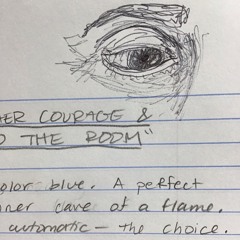 HER COURAGE &
O THE ROOM"
color blue. A perfect
nner cave of a flame.
automatic — the choice.